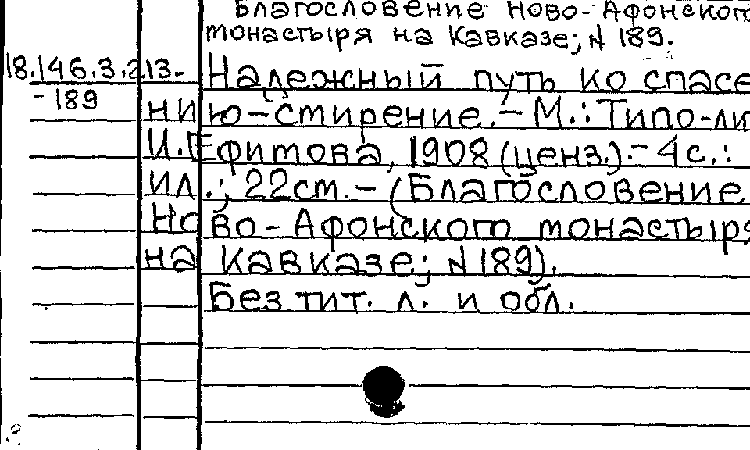 Благословение Ново-Афонского
монастыря на Кавказе; N 189.
18.146.3.213- Надежный путь ко спасе
-189 нию-смирение.-М.: Типо-ли
И.Ефимова, 1908 (ценз.).- 4с.:
ил.; 22см.-(Благословение
Ново-Афонского монастыря
на Кавказе; N 189).
Без тит. л. и обл.